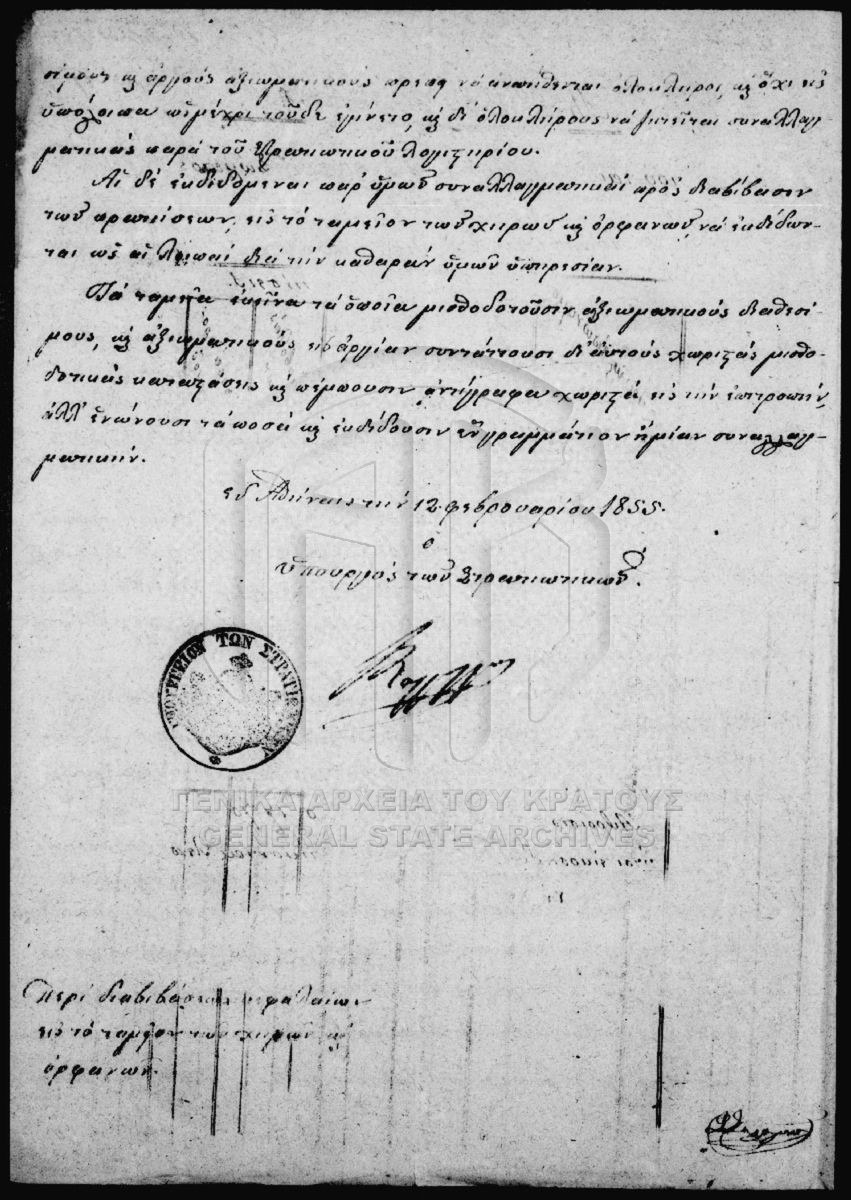 σίμους καὶ ἀργοὺς ἀξιωματικοὺς πρέπει νὰ ἀνατίθενται ὁλόκληροι, καὶ ὄχι εἰς
ὑπόλοιπα ὡς μέχρι τοῦδε ἐγίνετο, καὶ δι' ὁλοκλήρους νὰ ζητεῖται συναλλαγ-
ματικὰς παρὰ τοῦ Στρατιωτικοῦ Λογιστηρίου.
Αἱ δὲ ἐκδιδόμεναι παρ' ὑμῶν συναλλαγματικαὶ πρὸς διαβίβασιν
τῶν κρατήσεων, εἰς τὸ ταμεῖον τῶν χηρῶν καὶ ὀρφανῶν, νὰ ἐκδίδων-
ται ὡς αἱ λοιπαὶ διὰ τὴν καθαρὰν ὑμῶν ὑπηρεσίαν.
Τὰ ταμεῖα ἐκεῖνα τὰ ὁποῖα μισθοδοτοῦσιν ἀξιωματικοὺς διαθεσί-
μους, καὶ ἀξιωματικοὺς εἰς ἀργίαν συντάττουσι δι' αὐτοὺς χωριστὰς μισθο-
δοτικὰς καταστάσεις καὶ πέμπουσιν ἀντίγραφα χωριστὰ εἰς τὴν ἐπιτροπὴν,
ἀλλ' ἑνώνουσι τὰ ποσὰ καὶ ἐκδίδουσιν ἓν γραμμάτιον ἢ μίαν συναλλαγ-
ματικήν.
Ἐν Ἀθήναις τὴν 12 Φεβρουαρίου 1855.
ὁ
Ὑπουργὸς τῶν Στρατιωτικῶν.
ΥΠΟΥΡΓΕΙΟΝ ΤΩΝ ΣΤΡΑΤΙΩΤΙΚΩΝ
ΓΕΝΙΚΑ ΑΡΧΕΙΑ ΤΟΥ ΚΡΑΤΟΥΣ
GENERAL STATE ARCHIVES
Περὶ διαβιβάσεως κεφαλαίων
εἰς τὸ ταμεῖον τῶν χηρῶν καὶ
ὀρφανῶν.